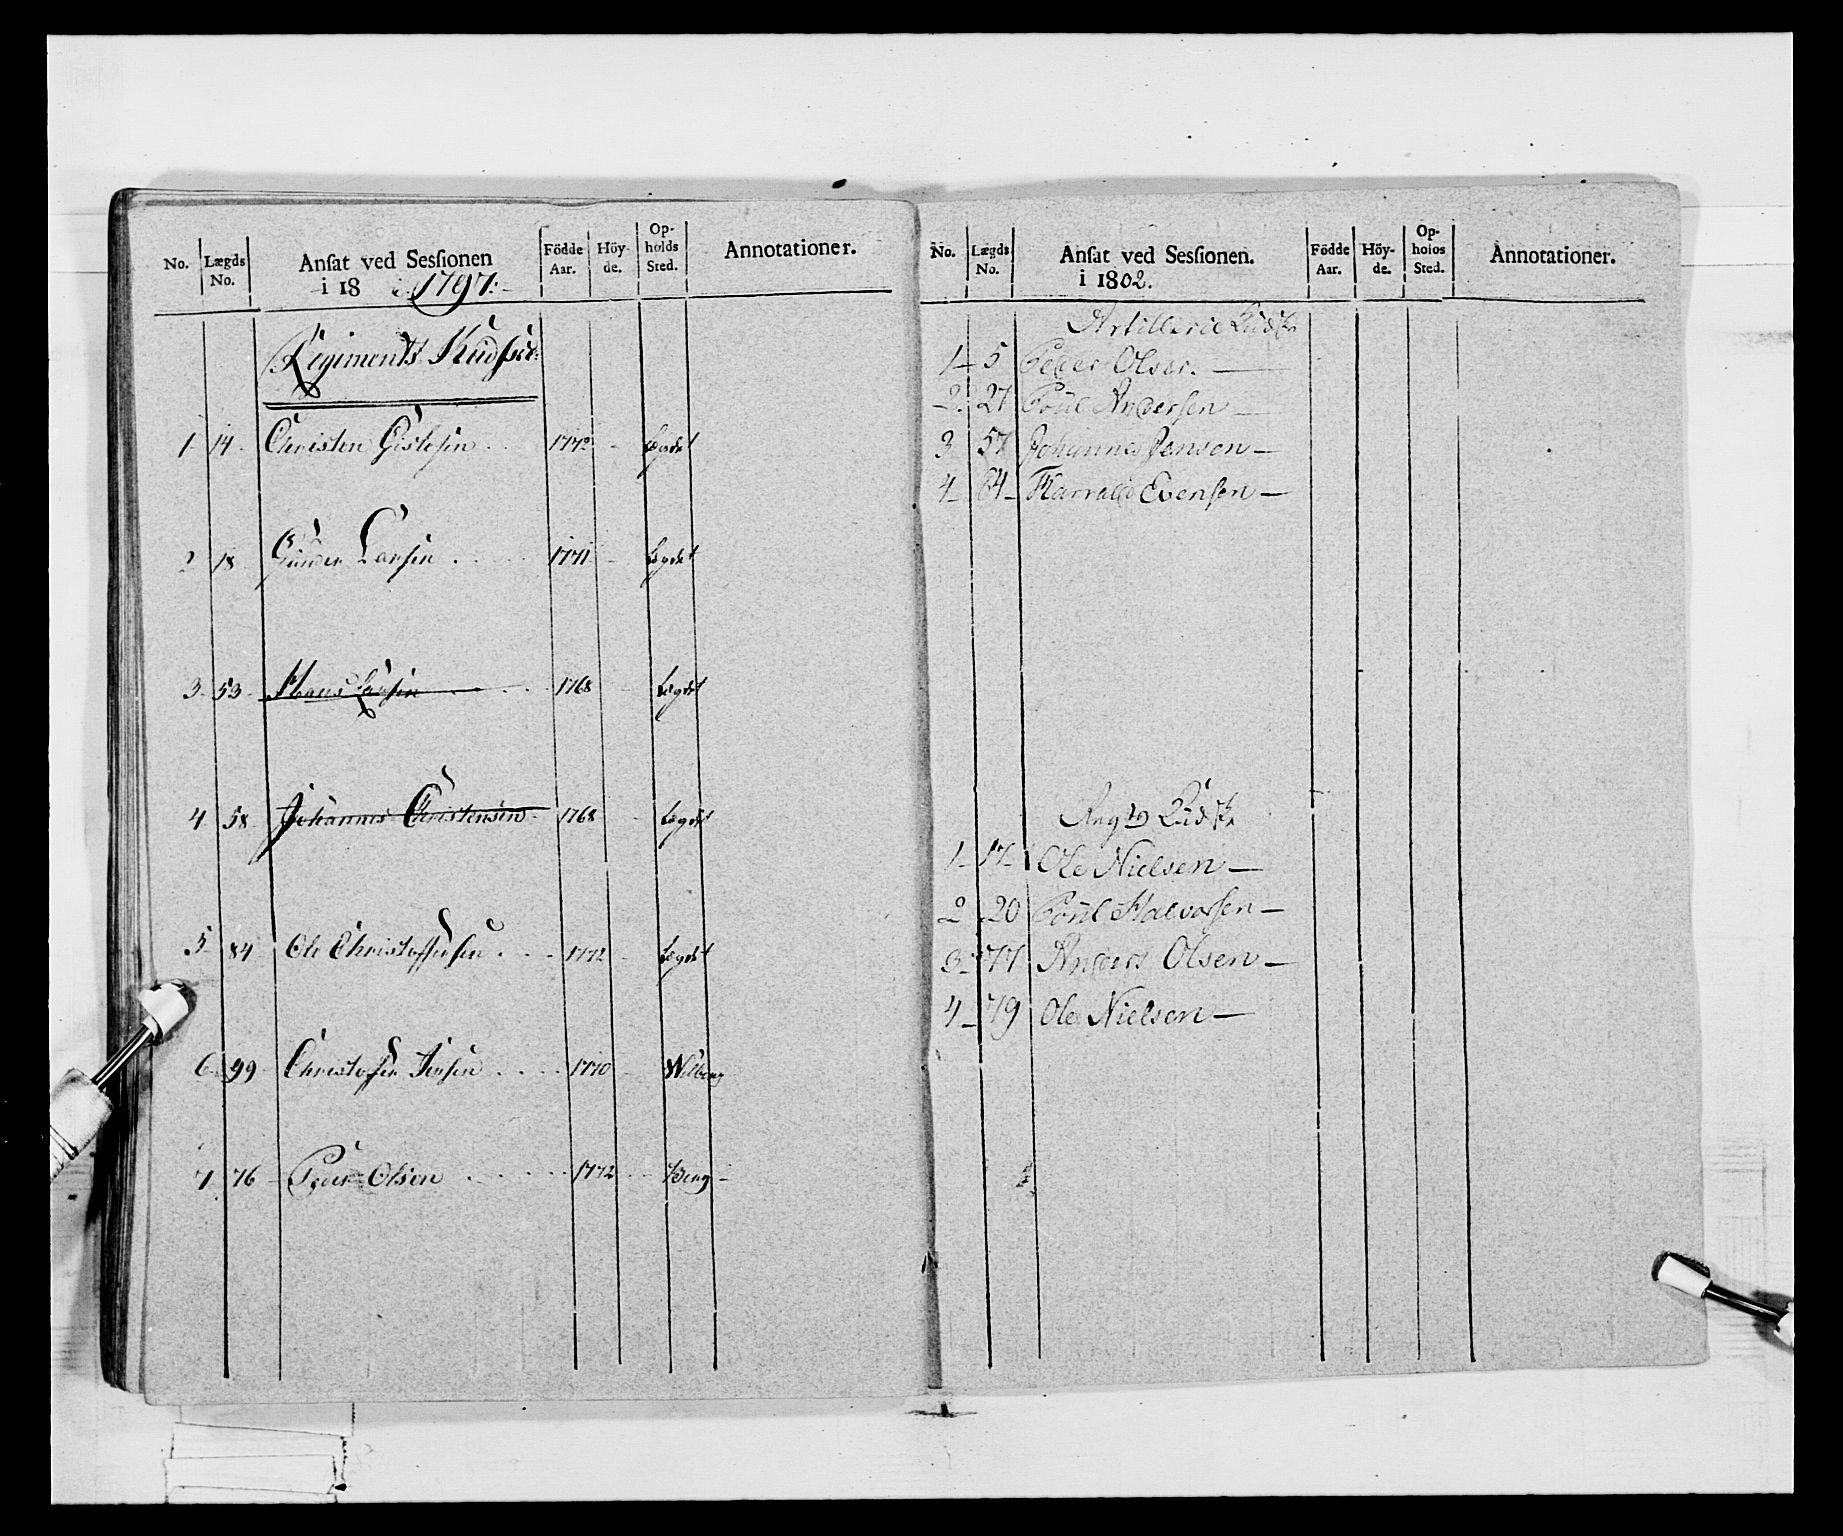 No. Lægds No. Ansat ved Sessionen i 18 1797. Födde Aar. Höy-de. Op-holds Sted. Annotationer.
Regiments Kudske:
1 14 Christen Gislesen 1772 Lægdet
2 18 Gunder Larsen 1771 Lægdet
3 53 Hans Larsen 1768 Lægdet
4 58 Johannes Christensen 1768 Lægdet
5 84 Ole Christoffersen 1772 Lægdet
6 99 Christoffer Jensen 1770
7 76 Peder Olsen 1772 Berg
No. Lægds No. Ansat ved Sessionen. i 1802. Födde Aar. Höy-de. Op-holds Sted. Annotationer.
Artillerie Kudske
1 5 Peder Olsen.
2. 27 Poul Andersen
3 57 Johannes Jensen
4 64 Harrald Evensen
Kudske
1 17 Ole Nielsen
2 20 Poul Halvorsen
3 77 Anders Olsen
4 79 Ole Nielsen